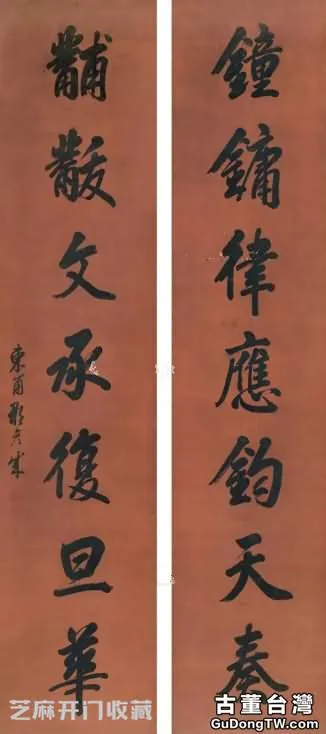 鐘鏞律應鈞天奏
黼黻文承復旦華
東甫那彦成
芝麻开门收藏
古董台灣
GuDongTW.com